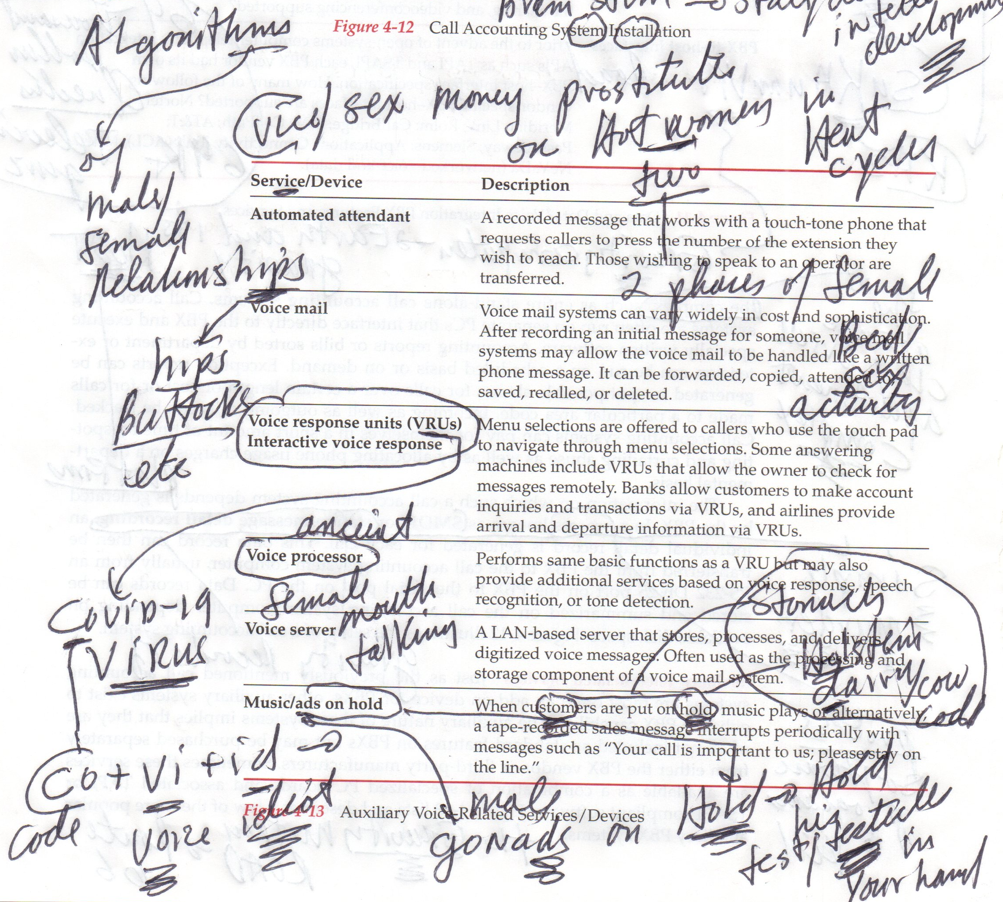 Algorithms
Figure 4-12 Call Accounting System Installation
development
(vice/ sex money prostitute
on Hot women in
Heat
cycles
two
of
male/
female
Relationships
hips
Buttocks
etc
Service/Device Description
Automated attendant A recorded message that works with a touch-tone phone that
requests callers to press the number of the extension they
wish to reach. Those wishing to speak to an operator are
transferred.
2 phases of female
Body
sex
activity
Voice mail Voice mail systems can vary widely in cost and sophistication.
After recording an initial message for someone, voice mail
systems may allow the voice mail to be handled like a written
phone message. It can be forwarded, copied, attended to,
saved, recalled, or deleted.
Voice response units (VRUs) Menu selections are offered to callers who use the touch pad
Interactive voice response to navigate through menu selections. Some answering
machines include VRUs that allow the owner to check for
messages remotely. Banks allow customers to make account
inquiries and transactions via VRUs, and airlines provide
arrival and departure information via VRUs.
ancient
Voice processor Performs same basic functions as a VRU but may also
provide additional services based on voice response, speech
recognition, or one detection.
female
mouth
talking
stomach
Covid-19
Virus
Voice server A LAN-based server that stores, processes, and delivers
digitized voice messages. Often used as the processing and
storage component of a voice mail system.
Larry/cow
code
Music/ads on hold When customers are put on hold, music plays or alternatively,
a pre-recorded sales message interrupts periodically with
messages such as "Your call is important to us; please stay on
the line."
Co + Vi +
code Voice
male
gonads on
fold → Hold
test/ digested in
your hand
Figure 4-13 Auxiliary Voice-Related Services/Devices